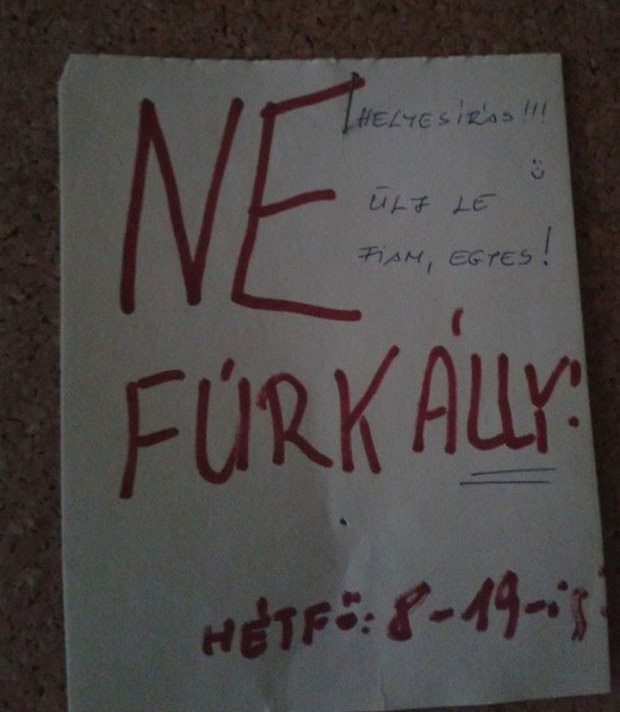 NE
HELYESÍRÁS!!!
ÜLJ LE
FIAM, EGYES!
FÚRKÁLLY!
HÉTFŐ: 8-19-ig